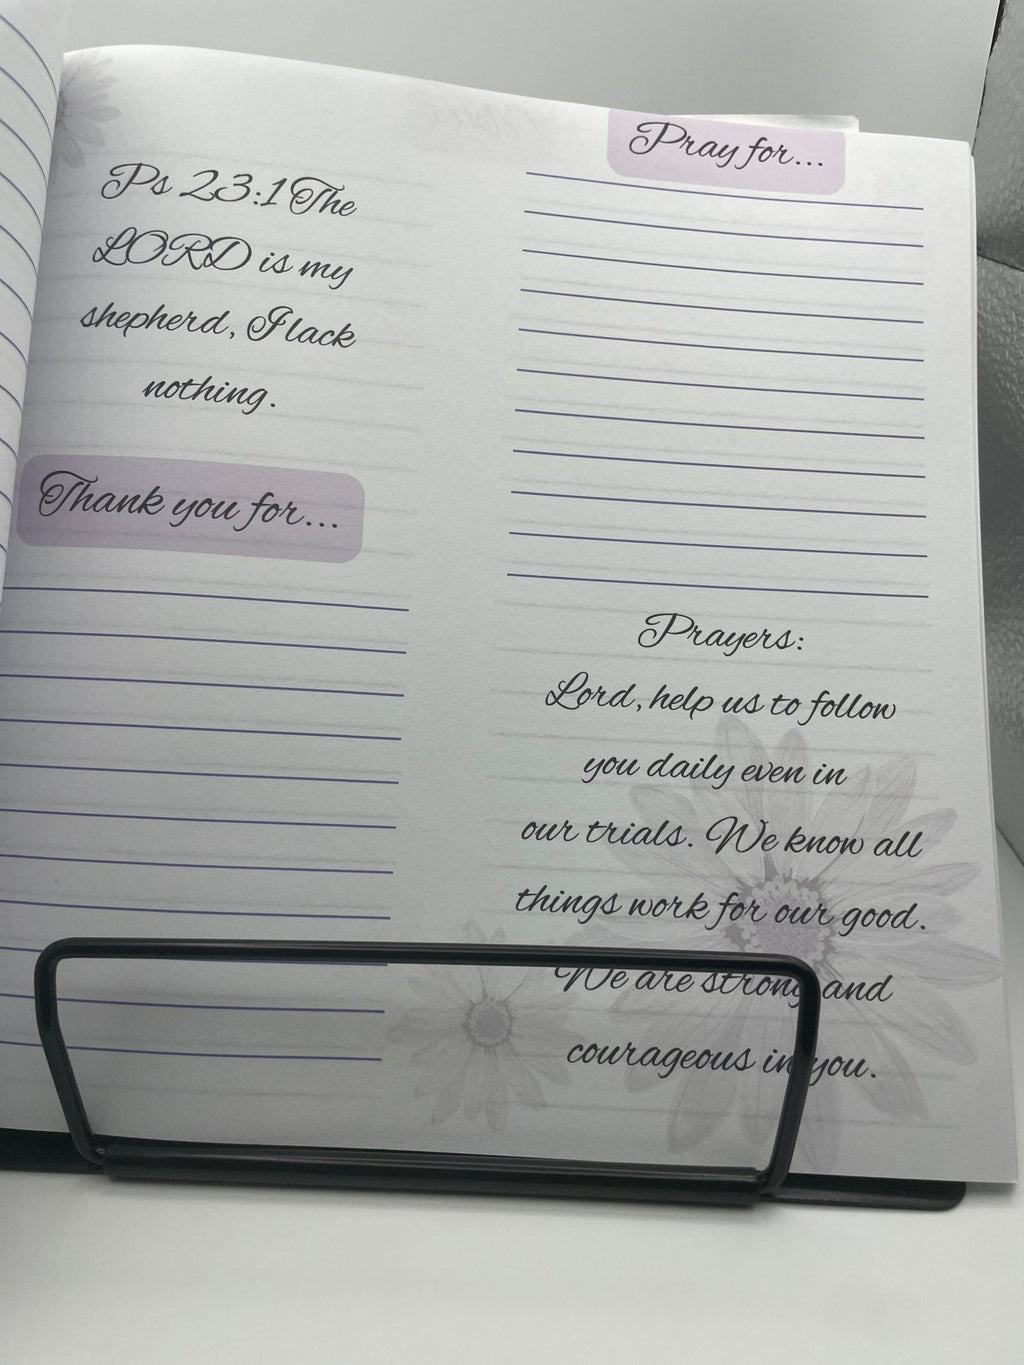 Ps 23:1 The
LORD is my
shepherd, I lack
nothing.
Thank you for...
Pray for...
Prayers:
Lord, help us to follow
you daily even in
our trials. We know all
things work for our good.
We are strong and
courageous in you.